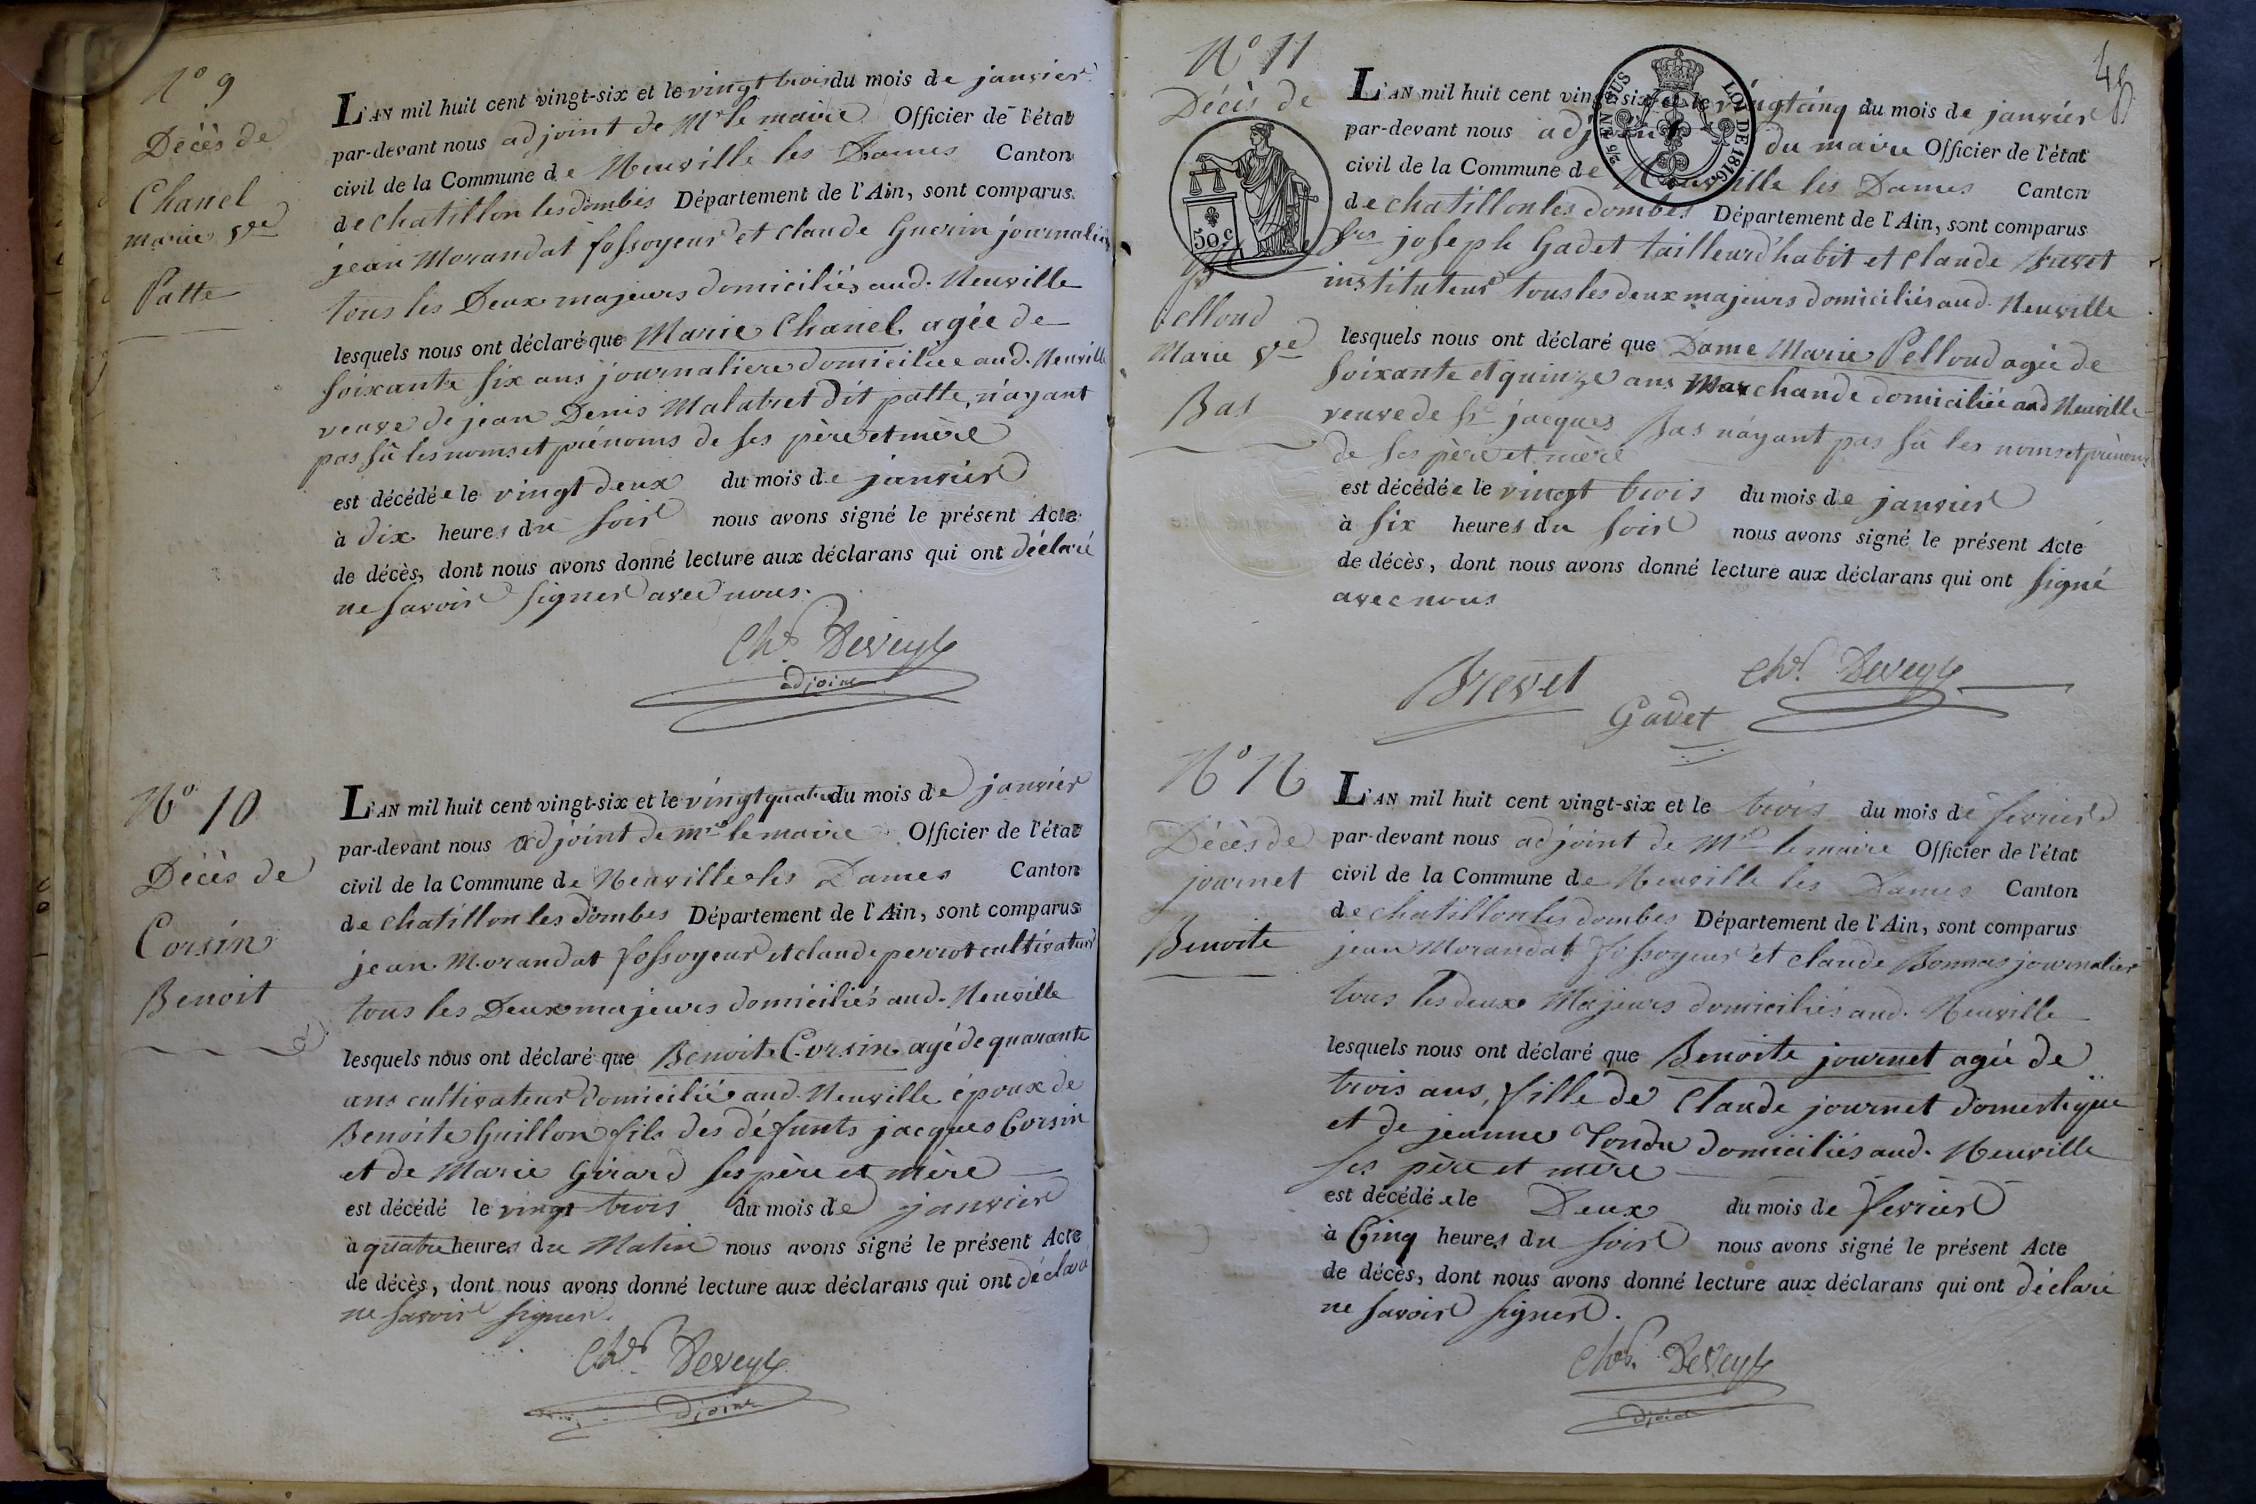 N° 9
Décès de
Chanel
marie v.ve
Patte
L'AN mil huit cent vingt-six et le vingt trois du mois de janvier
par-devant nous adjoint de Mr le maire Officier de l'état
civil de la Commune de Neuville les Dames Canton
de chatillon les dombes Département de l'Ain, sont comparus
jean Morandat fossoyeur et claude Guerin journalier
tous les Deux majeurs domiciliés aud. Neuville
lesquels nous ont déclaré que Marie Chanel agée de
soixante six ans journaliere domiciliée aud. Neuville
veuve de jean Denis Malatret dit patte, n'ayant
pas sû les noms et prénoms de ses père et mère
est décédée le vingt deux du mois de janvier
à dix heures du soir nous avons signé le présent Acte
de décès, dont nous avons donné lecture aux déclarans qui ont déclaré
ne savoir signer avec nous.
Chr Deveyle
adjoint
N° 10
Décès de
Corsin
Benoit
L'AN mil huit cent vingt-six et le vingt quatre du mois de janvier
par-devant nous adjoint de mr le maire Officier de l'état
civil de la Commune de Neuville les Dames Canton
de chatillon les dombes Département de l'Ain, sont comparus
jean Morandat fossoyeur et claude perrot cultivateur
tous les Deux majeurs domiciliés aud. Neuville
lesquels nous ont déclaré que Benoit Corsin agé de quarante
ans cultivateur domicilié aud. Neuville époux de
Benoite Guillon fils des défunts jacques Corsin
et de Marie Girard ses père et mère
est décédé le vingt trois du mois de janvier
à quatre heures du Matin nous avons signé le présent Acte
de décès, dont nous avons donné lecture aux déclarans qui ont déclaré
ne savoir signer.
Chr Deveyle
adjoint
48
N° 11
Décès de
50 c
Pelloud
Marie v.e
Bas
25 EN SUS LOI DE 1816
L'AN mil huit cent vingt-six et le vingt cinq du mois de janvier
par-devant nous adjoint du maire Officier de l'état
civil de la Commune de Neuville les Dames Canton
de chatillon les dombes Département de l'Ain, sont comparus
Srs joseph Gadet tailleur d'habit et claude Brevet
instituteur tous les deux majeurs domiciliés aud. Neuville
lesquels nous ont déclaré que Dame Marie Pelloud agée de
soixante et quinze ans Marchande domiciliée aud Neuville
veuve de Sr jacques Bas n'ayant pas sû les noms et prénoms
de ses père et mère
est décédée le vingt trois du mois de janvier
à six heures du soir nous avons signé le présent Acte
de décès, dont nous avons donné lecture aux déclarans qui ont signé
avec nous
Brevet Gadet Chr Deveyle
N° 12
Décès de
journet
Benoite
L'AN mil huit cent vingt-six et le trois du mois de fevrier
par-devant nous adjoint de Mr le maire Officier de l'état
civil de la Commune de Neuville les Dames Canton
de chatillon les dombes Département de l'Ain, sont comparus
jean Morandat fossoyeur et claude Bonnas journalier
tous les deux Majeurs domiciliés aud. Neuville
lesquels nous ont déclaré que Benoite journet agée de
trois ans, fille de Claude journet domestique
et de jeanne Tondu domiciliés aud. Neuville
ses père et mère
est décédée le Deux du mois de fevrier
à Cinq heures du soir nous avons signé le présent Acte
de décès, dont nous avons donné lecture aux déclarans qui ont déclaré
ne savoir signer.
Chr Deveyle
adjoint